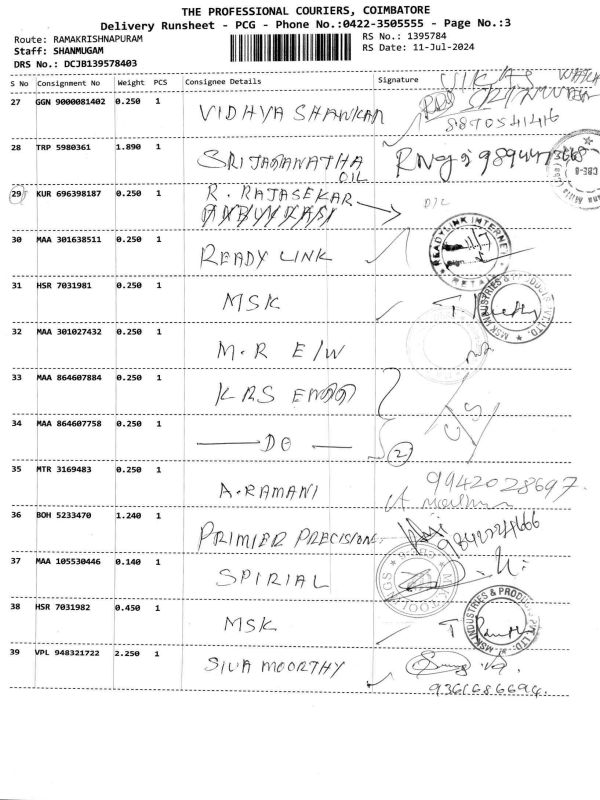 THE PROFESSIONAL COURIERS, COIMBATORE
Delivery Runsheet - PCG - Phone No.:0422-3505555 - Page No.:3
Route: RAMAKRISHNAPURAM
RS No.: 1395784
Staff: SHANMUGAM
RS Date: 11-Jul-2024
DRS No.: DCJB139578403
S No Consignment No Weight PCS Consignee Details Signature
27 GGN 9000081402 0.250 1 VIDHYA SHANKAR
28 TRP 5980361 1.890 1 SRI JAGANATHA OIL
29 KUR 696398187 0.250 1 R. RAJASEKAR D/L
30 MAA 301638511 0.250 1 READY LINK READYLINK INTERNET
31 HSR 7031981 0.250 1 MSK MSK INDUSTRIES & PRODUCTS PVT.LTD.
32 MAA 301027432 0.250 1 M.R E/W
33 MAA 864607884 0.250 1 KRS ENGG
34 MAA 864607758 0.250 1 DO 2
35 MTR 3169483 0.250 1 A.RAMANI 9942028697.
36 BOH 5233470 1.240 1 PRIMIER PRECISION
37 MAA 105530446 0.140 1 SPIRIAL
38 HSR 7031982 0.450 1 MSK MSK INDUSTRIES & PRODUCTS PVT LTD.
39 VPL 948321722 2.250 1 SIVA MOORTHY
9361686694.